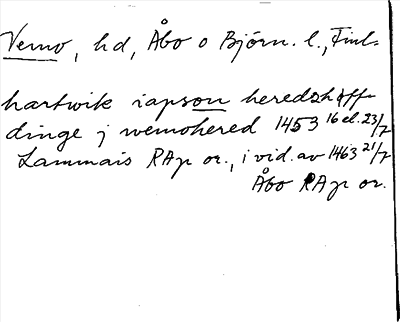 Vemo, hd, Åbo o Björn. l., Finl.
hartwik iapson heredzhøff-
dinge j wemohered 1453 16 el. 23/7
Lammais RAp or., i vid. av 1463 21/7
Åbo RAp or.